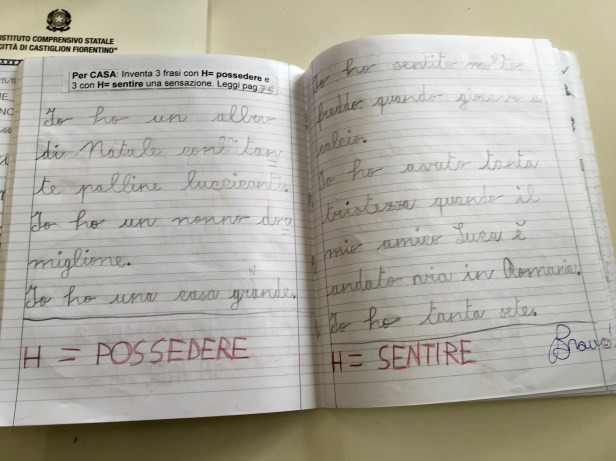 ISTITUTO COMPRENSIVO STATALE
"CITTÀ DI CASTIGLION FIORENTINO"
Per CASA: Inventa 3 frasi con H= possedere e
3 con H= sentire una sensazione. Leggi pag 75
Io ho un albero
di Natale con tan
te palline luccicanti.
Io ho un nonno doo
miglione.
Io ho una casa grande.
H = POSSEDERE
Io ho sentito molto
freddo quando giocavo a
calcio.
Io ho avuto tanta
tristezza quando il
mio amico Luca è
andato via in Romania.
Io ho tanta sete.
H = SENTIRE
Bravo